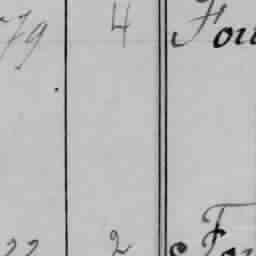 79 4 Fou
22 2